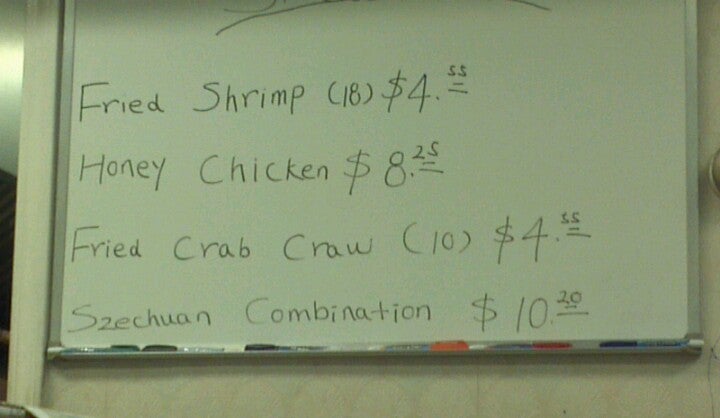 Fried Shrimp (18) $4.55
Honey Chicken $8.25
Fried Crab Craw (10) $4.55
Szechuan Combination $10.20